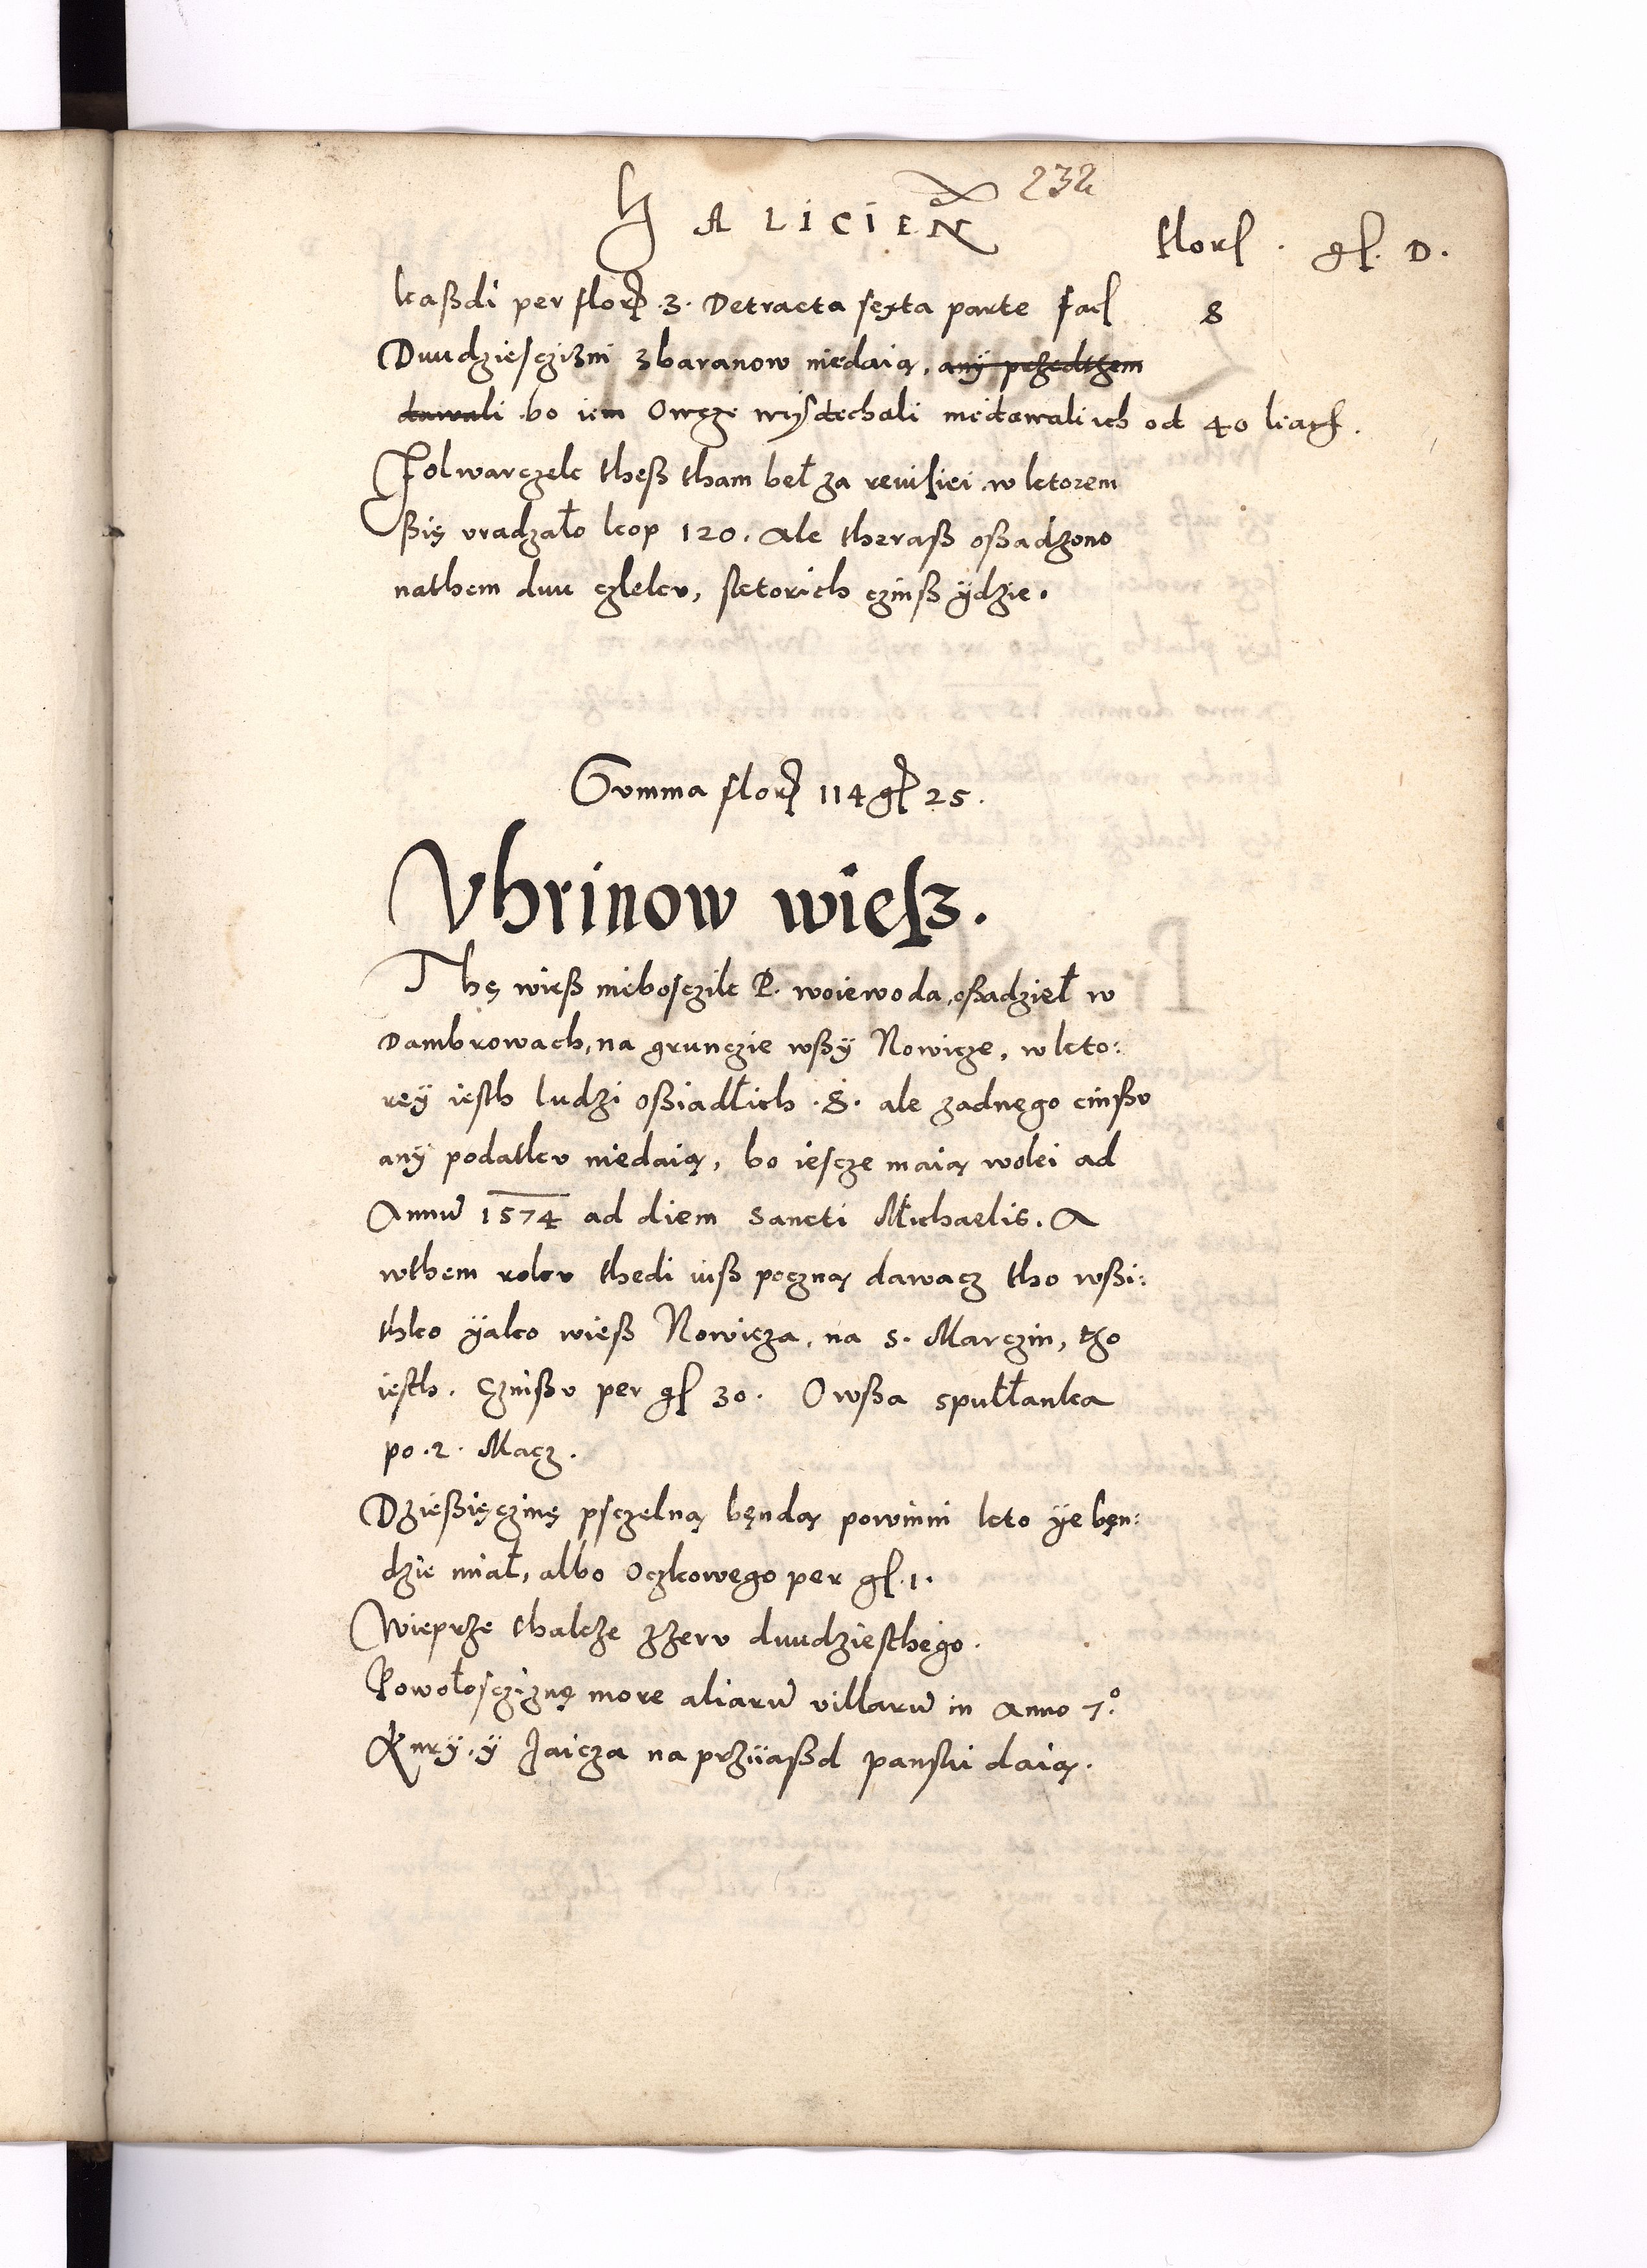 232
HALICIEN
flor. gſ. D.
kaßdi per flor. 3. Detracta sexta parte fac 8
Dwudziesczizni zbaranow niedaią, any przedthem
dawali bo iem Owcze wyſdechali niedawali ich od 40
Folwarczek theß tham beł za reuisiei w ktorem
ßię vradzało kop 120. Ale theraß oßadzono
nathem dwu człeku, sktorich czinß ÿdzie.
Summa flor. 114 gſ 25.
Vhrinow wieſz.
Thę wieß nieboſczik P. woiewoda, oßadzieł w
Dambrowach, na grunczie wßÿ Nowicze, w kto:
reÿ iesth ludzi oßiadłich .8. ale zadnego cinßv
anÿ podatkv niedaią, bo ieſcze maią wolei ad
Annũ 1574 ad diem Sancti Michaelis. A
wthem rokv thedi iuß poczną dawacz tho wßi:
thko ÿako wieß Nowicza, na S. Marczin, tho
iesth. Czinßv per gſ 30. Owßa spułłanka
po .2. Macz.
Dzießięczinę psczelną będą powinni kto ÿe bęn:
dzie miał, albo Oczkowego per gſ. 1.
Wieprze thakze zzerv dwudziesthego.
Powołosczÿznę more aliarũ villarũ in Anno 7.º
Kurÿ. ÿ Jaicza na prziiaßd panski daią.